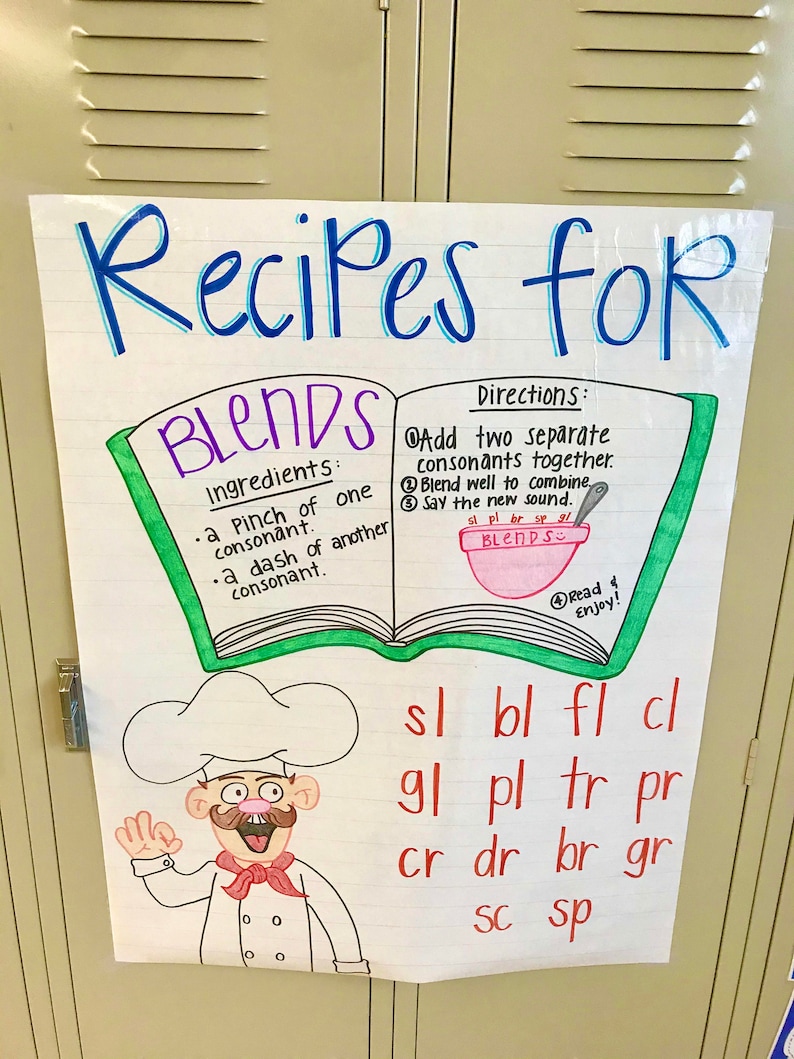 Recipes for
Blends
Ingredients:
• a pinch of one
consonant.
• a dash of another
consonant.
Directions:
① Add two separate
consonants together.
② Blend well to combine.
③ Say the new sound.
sl pl br sp gl
BLENDS
④ Read &
Enjoy!
sl bl fl cl
gl pl tr pr
cr dr br gr
sc sp